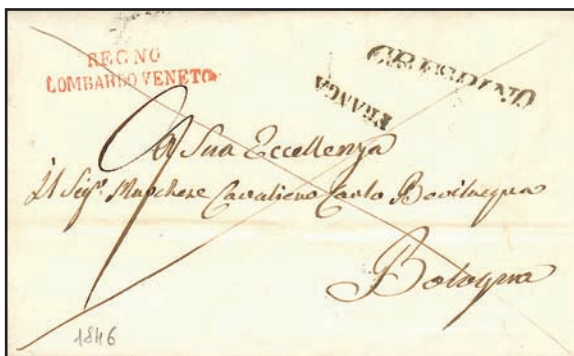 REGNO
LOMBARDO VENETO
CRESPINO
FRANCA
A Sua Eccellenza
Il Sigr. Marchese Cavaliere Carlo Bevilacqua
Bologna
1846